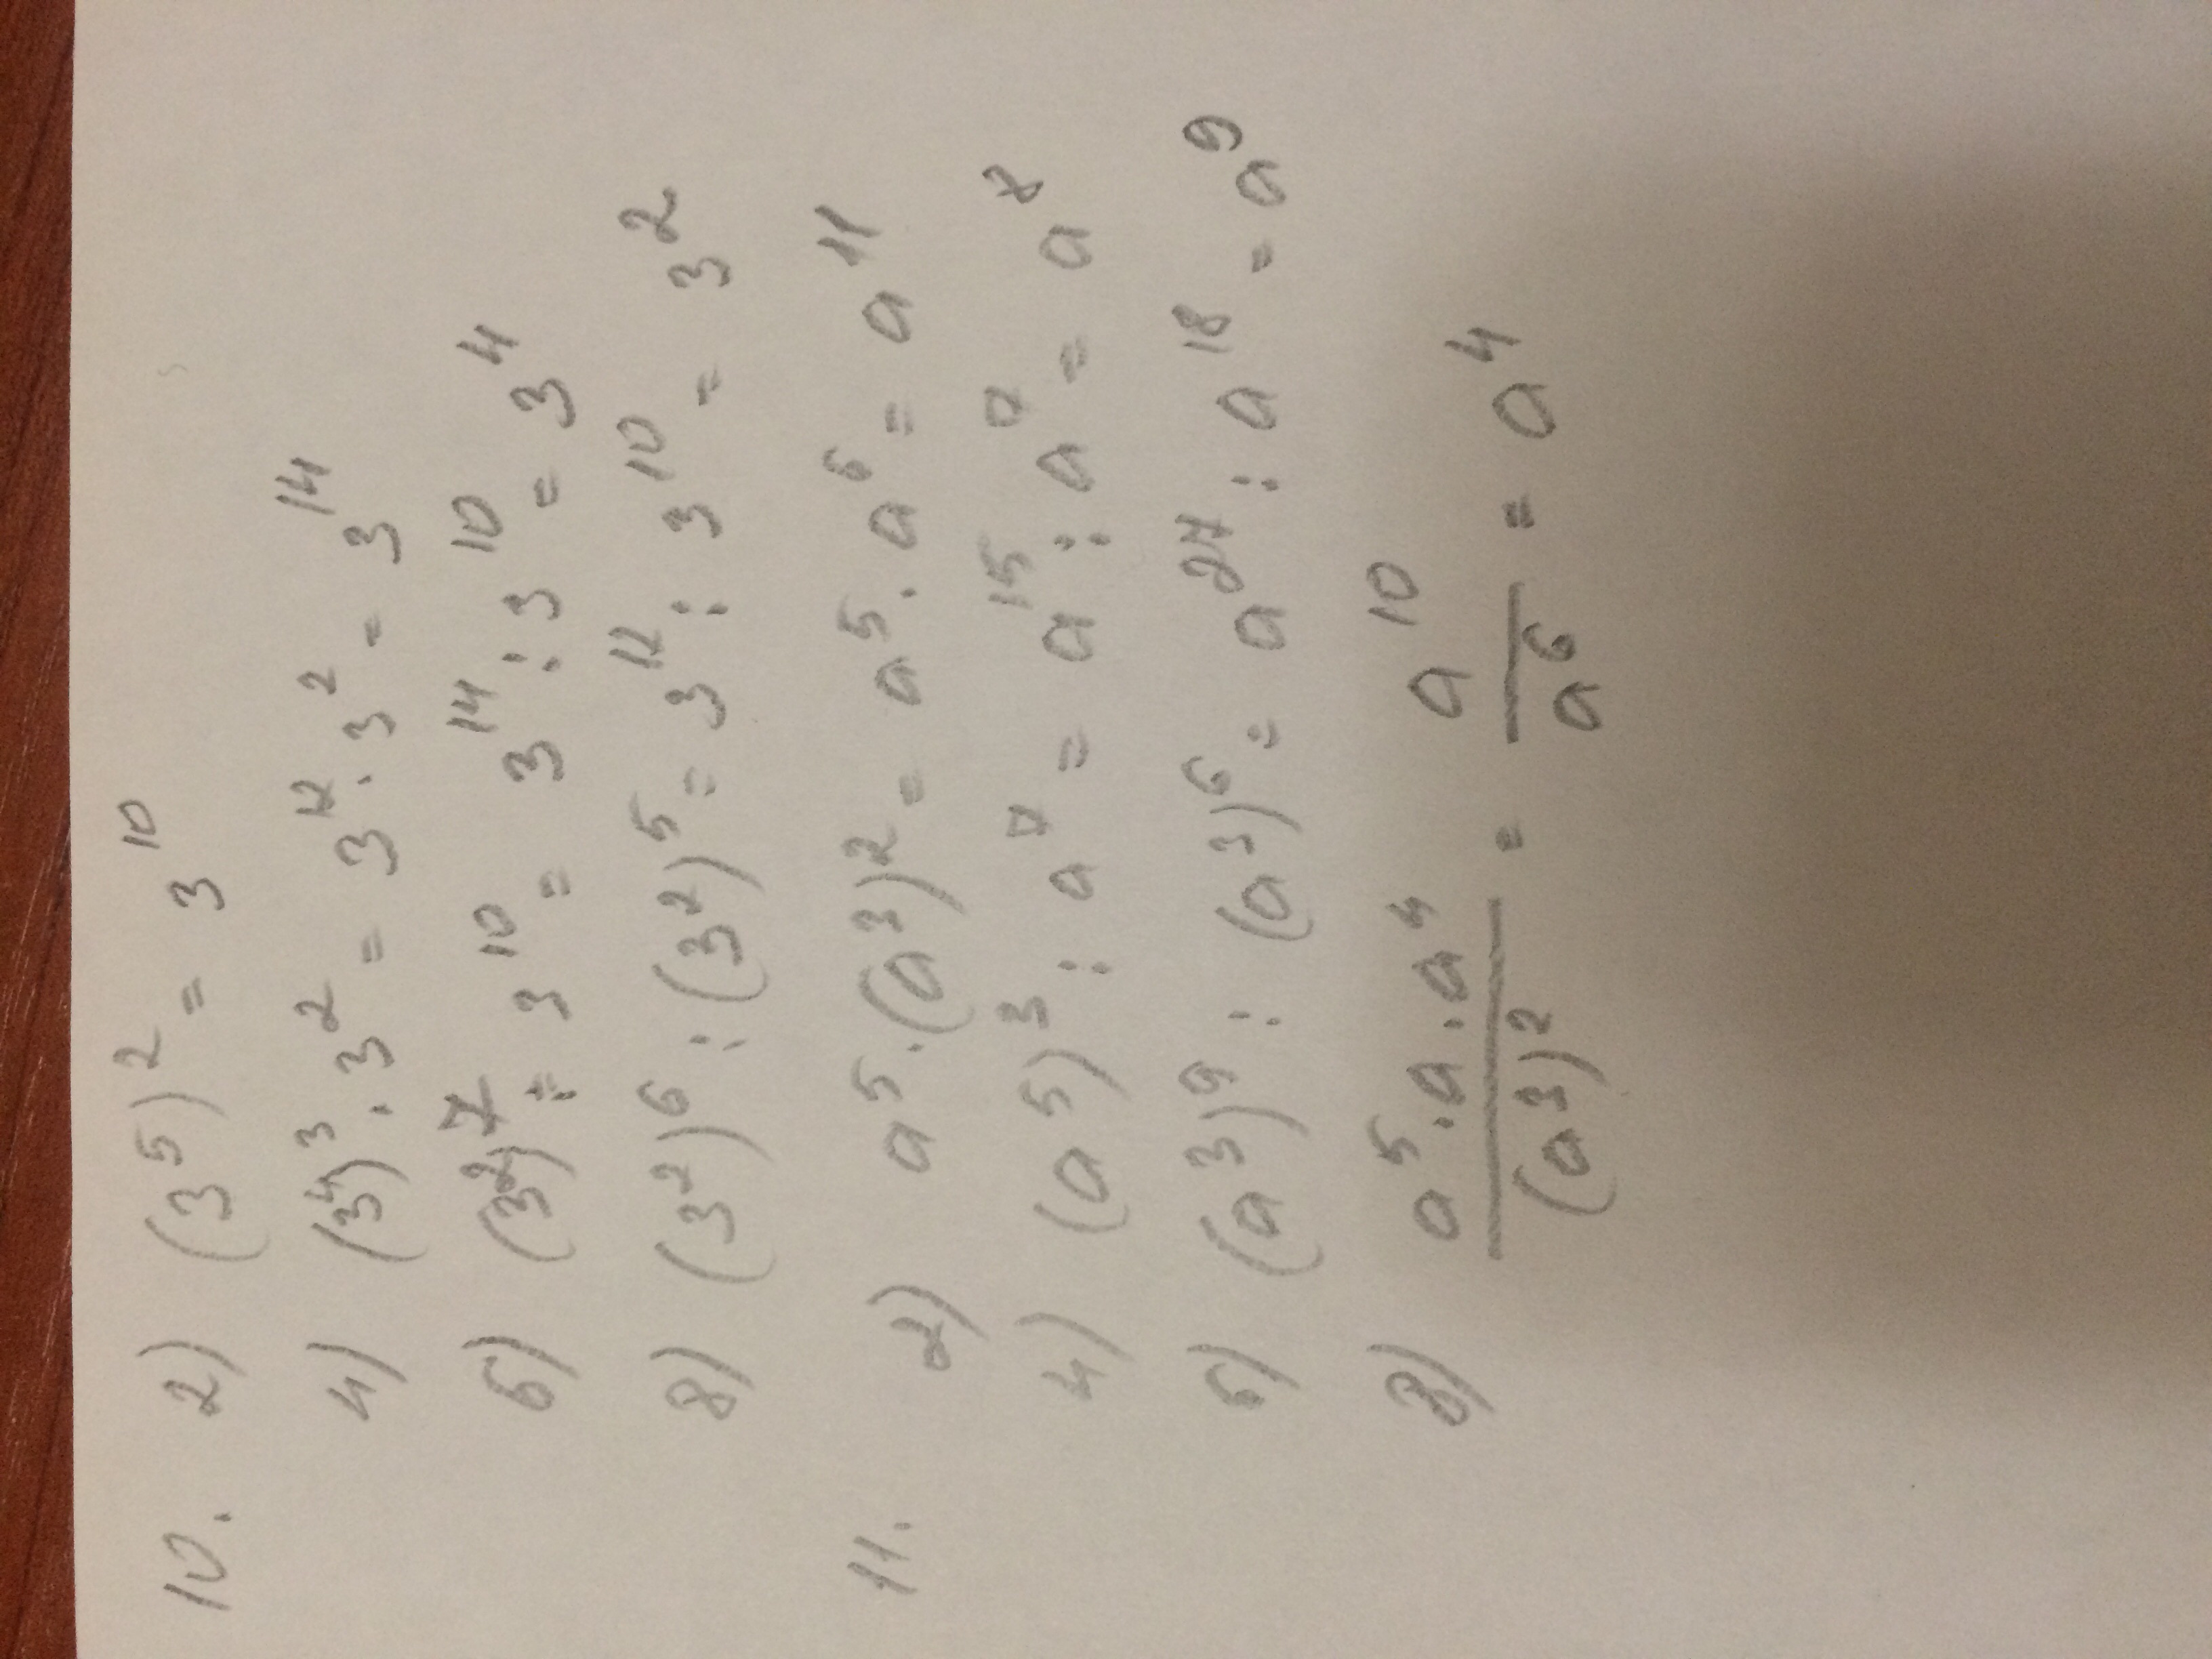 10. 2) (3⁵)² = 3¹⁰
4) (3⁴)³ · 3² = 3¹² · 3² = 3¹⁴
6) (3²)⁷ : 3¹⁰ = 3¹⁴ : 3¹⁰ = 3⁴
8) (3²)⁶ : (3²)⁵ = 3¹² : 3¹⁰ = 3²
11. 2) a⁵ · (a³)² = a⁵ · a⁶ = a¹¹
4) (a⁵)³ : a⁷ = a¹⁵ : a⁷ = a⁸
6) (a³)⁹ : (a³)⁶ = a²⁷ : a¹⁸ = a⁹
8) a⁵ · a · a⁴ / (a³)² = a¹⁰ / a⁶ = a⁴